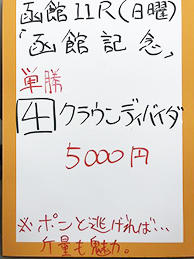 函館11R(日曜)
「函館記念」
単勝
4 クラウンディバイダ
5000円
※ポンと逃げれば…
斤量も魅力。